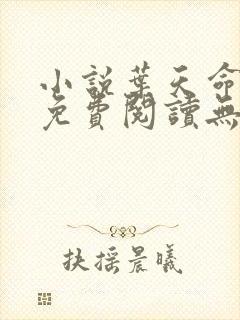 小説葉天命
免費閱讀無
扶摇晨曦